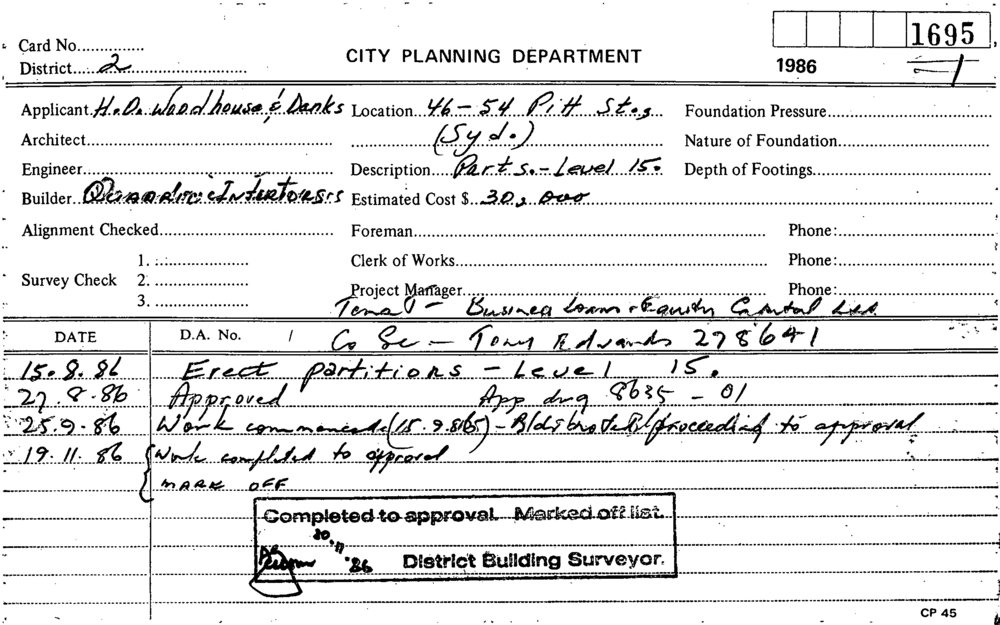 1695
Card No...............
CITY PLANNING DEPARTMENT
District.....2...........................
1986 1
Applicant H.O. Woodhouse & Danks Location...46-54 Pitt St., Foundation Pressure...................
Architect............................................ (Syd.) Nature of Foundation...................
Engineer............................................ Description...Parts.-Level 15. Depth of Footings...................
Builder... Interiors Estimated Cost $...30,000
Alignment Checked............................ Foreman............................ Phone:...................
1. ................... Clerk of Works............................ Phone:...................
Survey Check 2. ...................
3. ................... Project Manager............................ Phone:...................
Tenant - Business Loans & Equity Capital Ltd.
DATE D.A. No. / Co Sec - Tony Edwards 278641
15.8.86 Erect partitions - Level 15.
27.8.86 Approved App drg 8635-01
25.9.86 Work commenced (15.9.86) - proceeding to approval
19.11.86 Work completed to approval
MARK OFF
Completed to approval. Marked off list.
20.11.86 District Building Surveyor.
CP 45